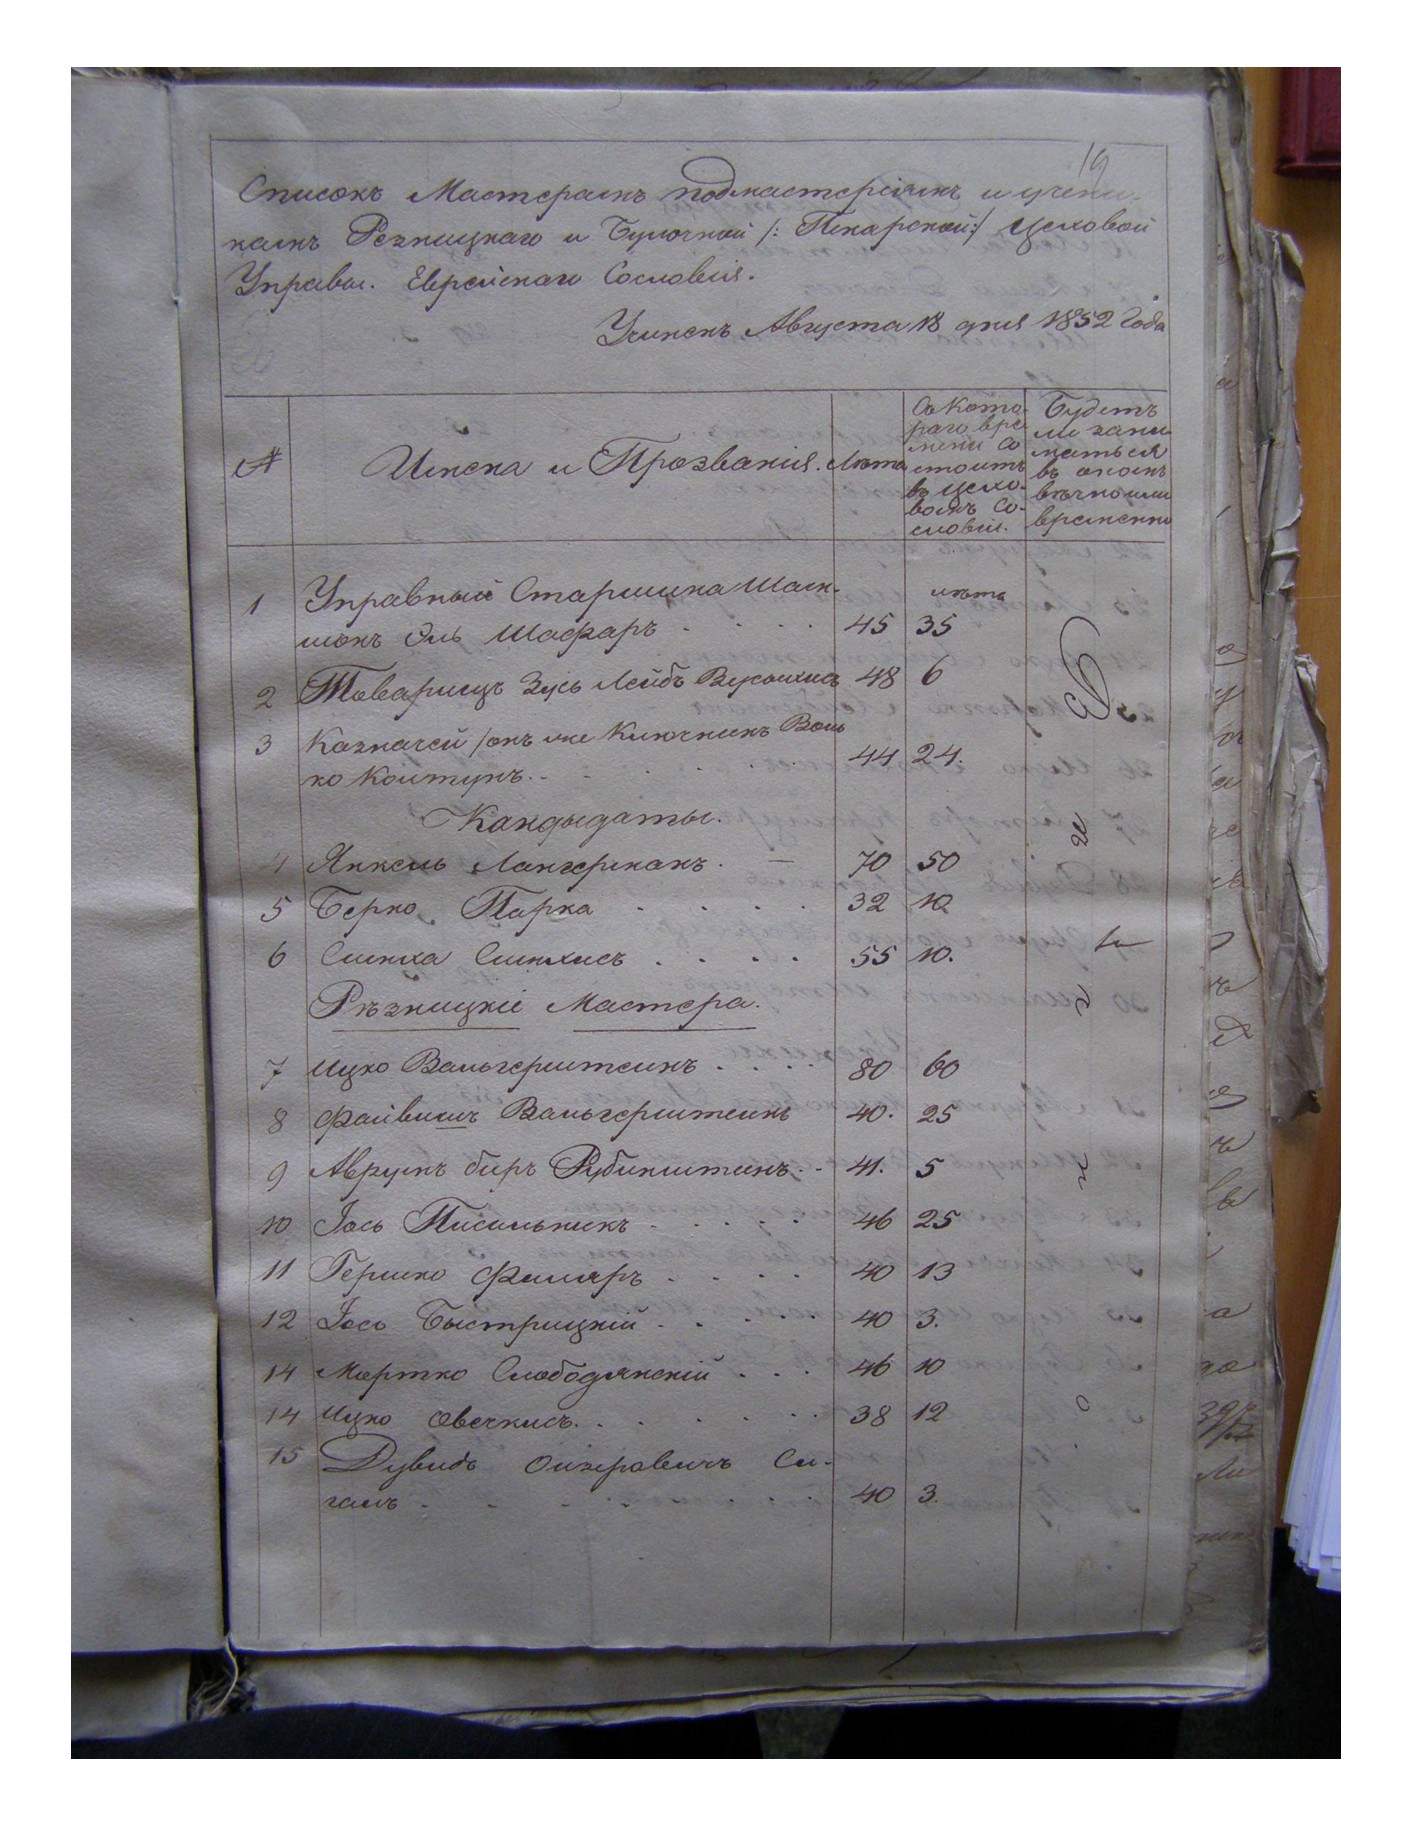 19
Списокъ Мастерамъ подмастеріямъ и учени-
камъ Резницкаго и Булочной /: Пекарской :/ Цеховой
Управы. Еврейскаго Сословія.
Августа 18 дня 1852 Года
№ Имена и Прозванія. Лѣта Съ Кото- раго вре- мени со стоитъ въ цехо- вомъ Со- словіи. Будетъ ли зани маться въ ономъ вѣчно или временно
1 Управный Старшина Шлем- лѣта
Эль Шафаръ . . . . 45 35
2 Товарищъ Зусь Лейбъ 48 6
3 Казначей /онъ же Ключникъ Воль
ко Колтунъ. . . . . 44 24.
Кандыдаты.
4 Янкель Лангерманъ. — 70 50
5 Берко Парка . . . . 32 10
6 Симха Симхисъ . . . . 55 10.
Рѣзницкіе Мастера.
7 Ицко Вальгерштеинъ . . . . 80 60
8 Файвишъ Вальгерштеинъ 40. 25
9 Аврумъ беръ Рубинштинъ. . 41. 5
10 Іось Писильникъ . . . . . 46 25
11 Гершко Фишаръ . . . . 40 13
12 Іось Быстрицкій . . . . . 40 3.
14 Мортко Слободянскій . . . 46 10
14 Ицко Овсечкисъ. . . . . . . 38 12
15 Дувидъ Ойзеровичъ Си-
галъ . . . . . . . . 40 3.